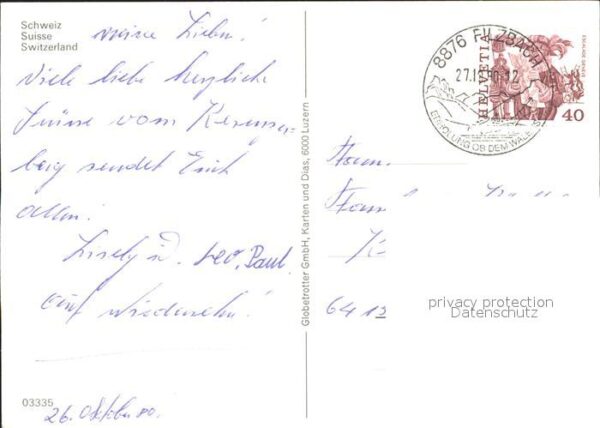 Schweiz
Suisse
Switzerland
meine Lieben!
Viele liebe herzliche
Grüsse vom Kerenzer-
berg sendet Euch
allen!
Lisely u. Leo, Paul.
auf Wiedersehn!
03335
26. Oktober 80.
Globetrotter GmbH, Karten und Dias, 6000 Luzern
8876 FILZBACH
27.10.80-12
ERHOLUNG OB DEM WALEN
HELVETIA
ESCALADE GENÈVE
40
Fam.
6413
privacy protection
Datenschutz